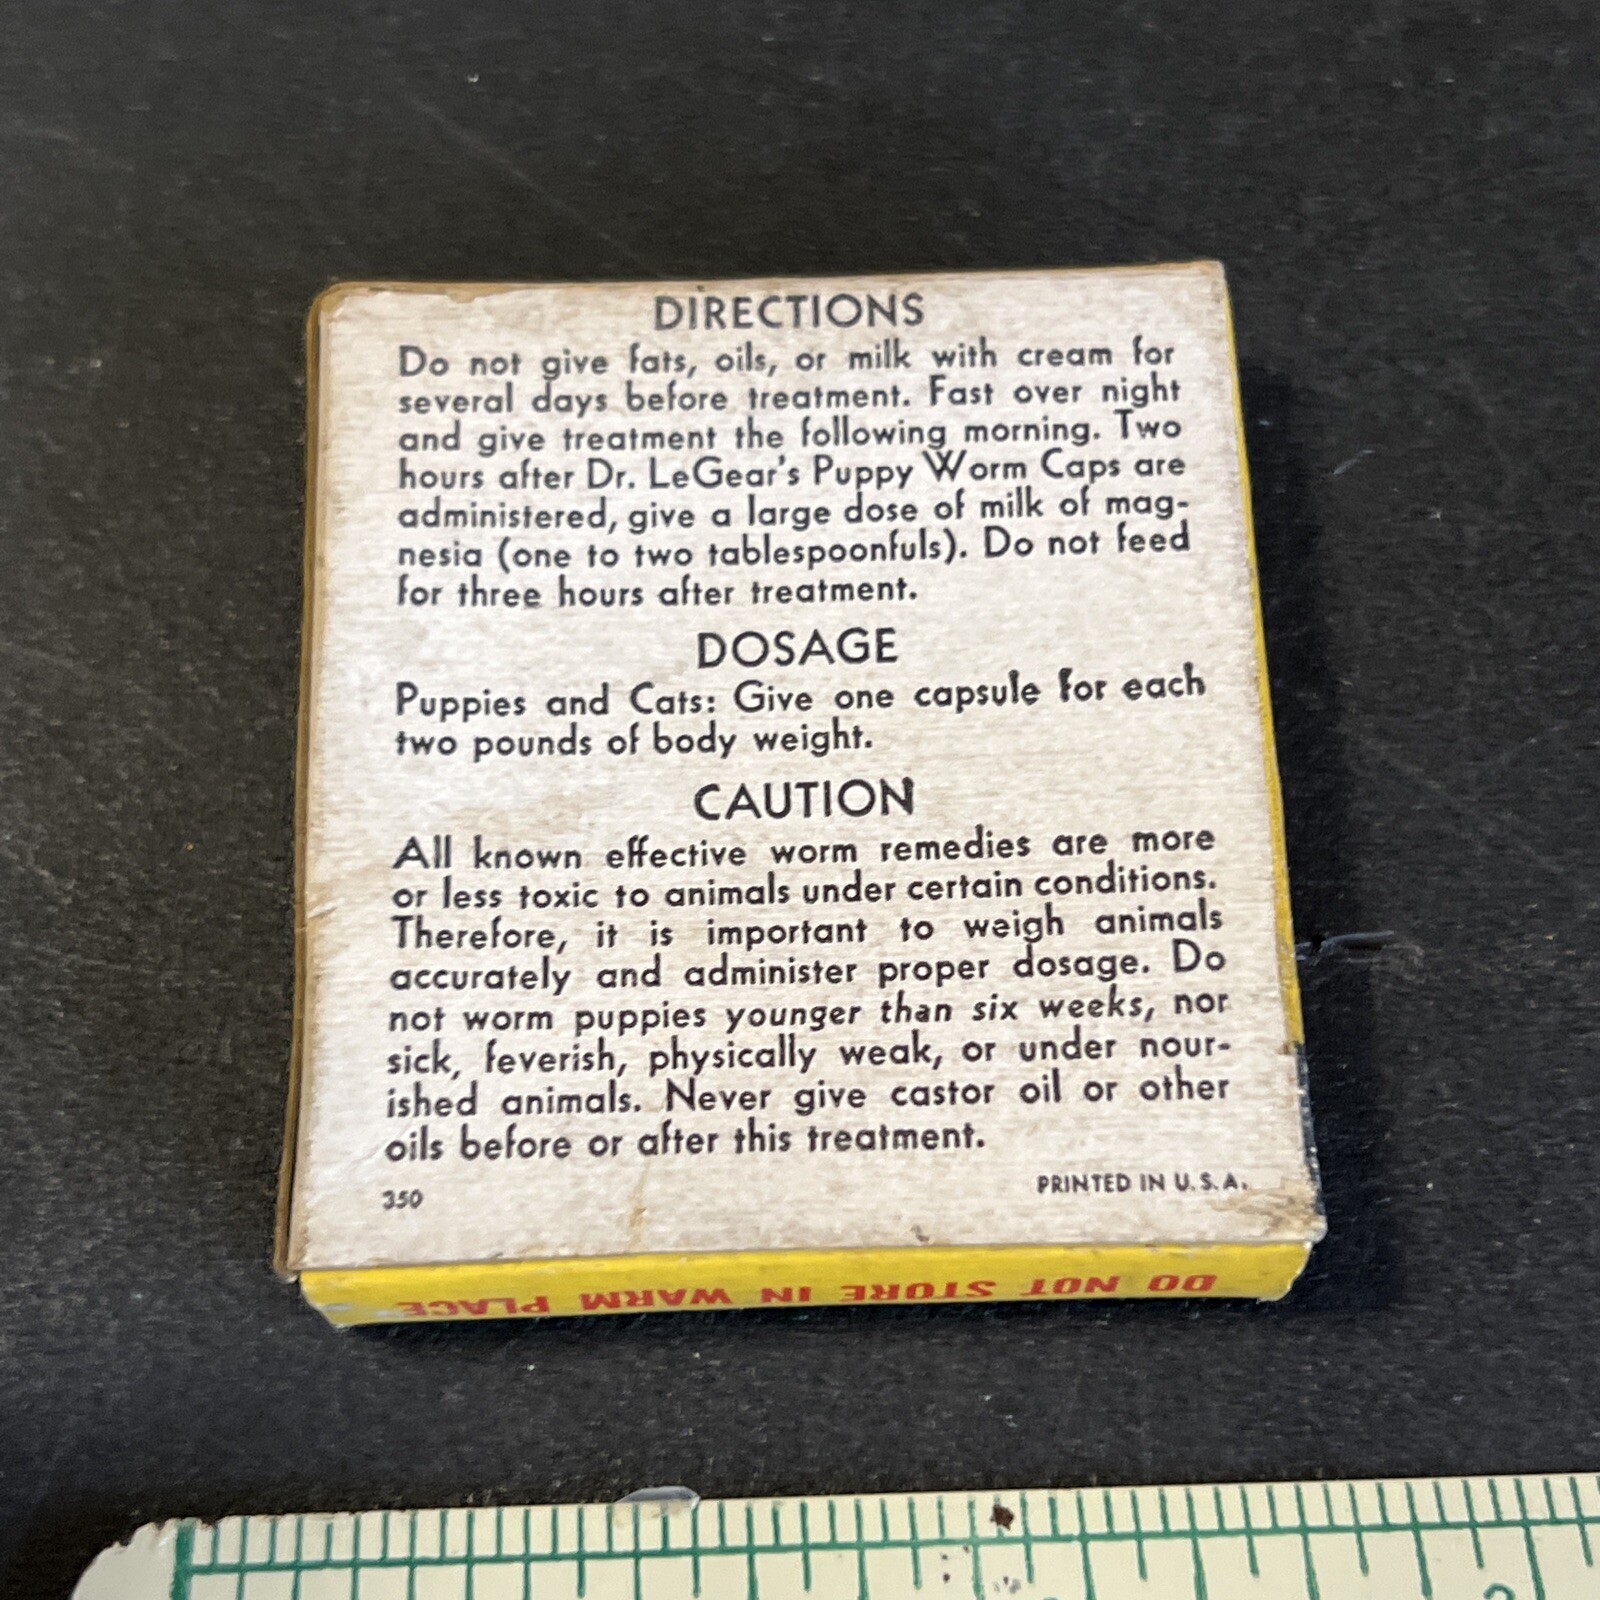 DIRECTIONS
Do not give fats, oils, or milk with cream for
several days before treatment. Fast over night
and give treatment the following morning. Two
hours after Dr. LeGear's Puppy Worm Caps are
administered, give a large dose of milk of mag-
nesia (one to two tablespoonfuls). Do not feed
for three hours after treatment.
DOSAGE
Puppies and Cats: Give one capsule for each
two pounds of body weight.
CAUTION
All known effective worm remedies are more
or less toxic to animals under certain conditions.
Therefore, it is important to weigh animals
accurately and administer proper dosage. Do
not worm puppies younger than six weeks, nor
sick, feverish, physically weak, or under nour-
ished animals. Never give castor oil or other
oils before or after this treatment.
350
PRINTED IN U.S.A.
DO NOT STORE IN WARM PLACE